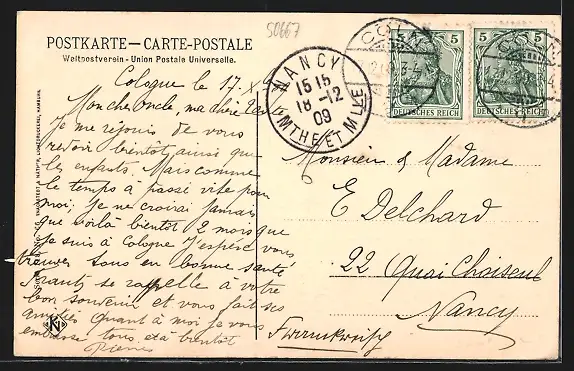 50667
POSTKARTE — CARTE-POSTALE
Weltpostverein - Union Postale Universelle.
Cologne le 17.X
Mon cher Oncle, ma chère
Je me réjouis de vous
revoir bientôt ainsi que
les enfants. Mais comme
le temps a passé vite pour
moi; je ne croirai jamais
que voilà bientôt 2 mois que
je suis à Cologne J'espère vous
trouver tous en bonne santé
Frantz se rappelle à votre
bon souvenir et vous fait ses
amitiés Quant à moi je vous
embrasse tous, et à bientôt
Pierre
NANCY
15 15
18-12
09
MTHE ET MLLE
5
DEUTSCHES REICH
5
DEUTSCHES REICH
Monsieur & Madame
E Delchard
22 Quai Choiseul
Nancy
Frankreich